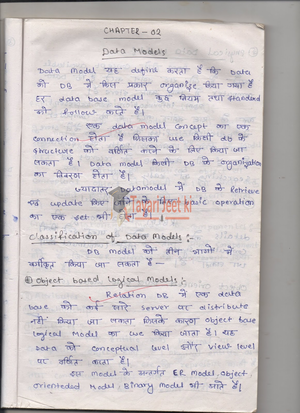 CHAPTER - 02
Data Models
Data Model यह define करता है कि Data
को DB में किस प्रकार organize किया गया है
हर data base model कुछ नियम तथा standard
को follow करते हैं।
एक data model concept का एक
connection होता है जिसका use किसी db के
structure को वर्णित करने के लिए किया जा
सकता है। Data model किसी DB के organization
का विवरण होता है।
ज्यादातर Datamodel में DB को Retrieve
एवं update किए जाने के लिए basic operation
का एक set भी होता है।
Tayari Jeet ki
Classification of Data Models :-
DB model को तीन भागों में
वर्गीकृत किया जा सकता है
Object based Logical Models :-
Relation DB में एक data
base को कई सारे server पर distribute
नहीं किया जा सकता जिसके कारण object base
logical Model का use किया जाता है। यह
data को conceptual level और view level
पर वर्णित करता है।
इस model के अन्तर्गत ER Model, object
oriented Model, Binary model भी आते हैं।